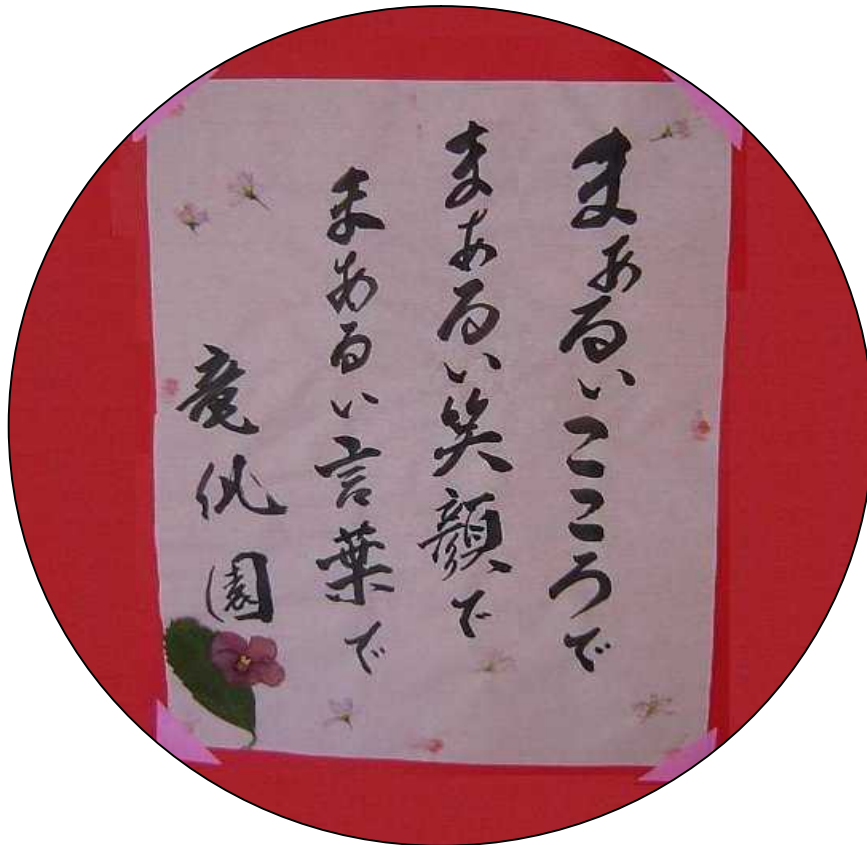 まあるいこころで
まあるい笑顔で
まあるい言葉で
竜仙園